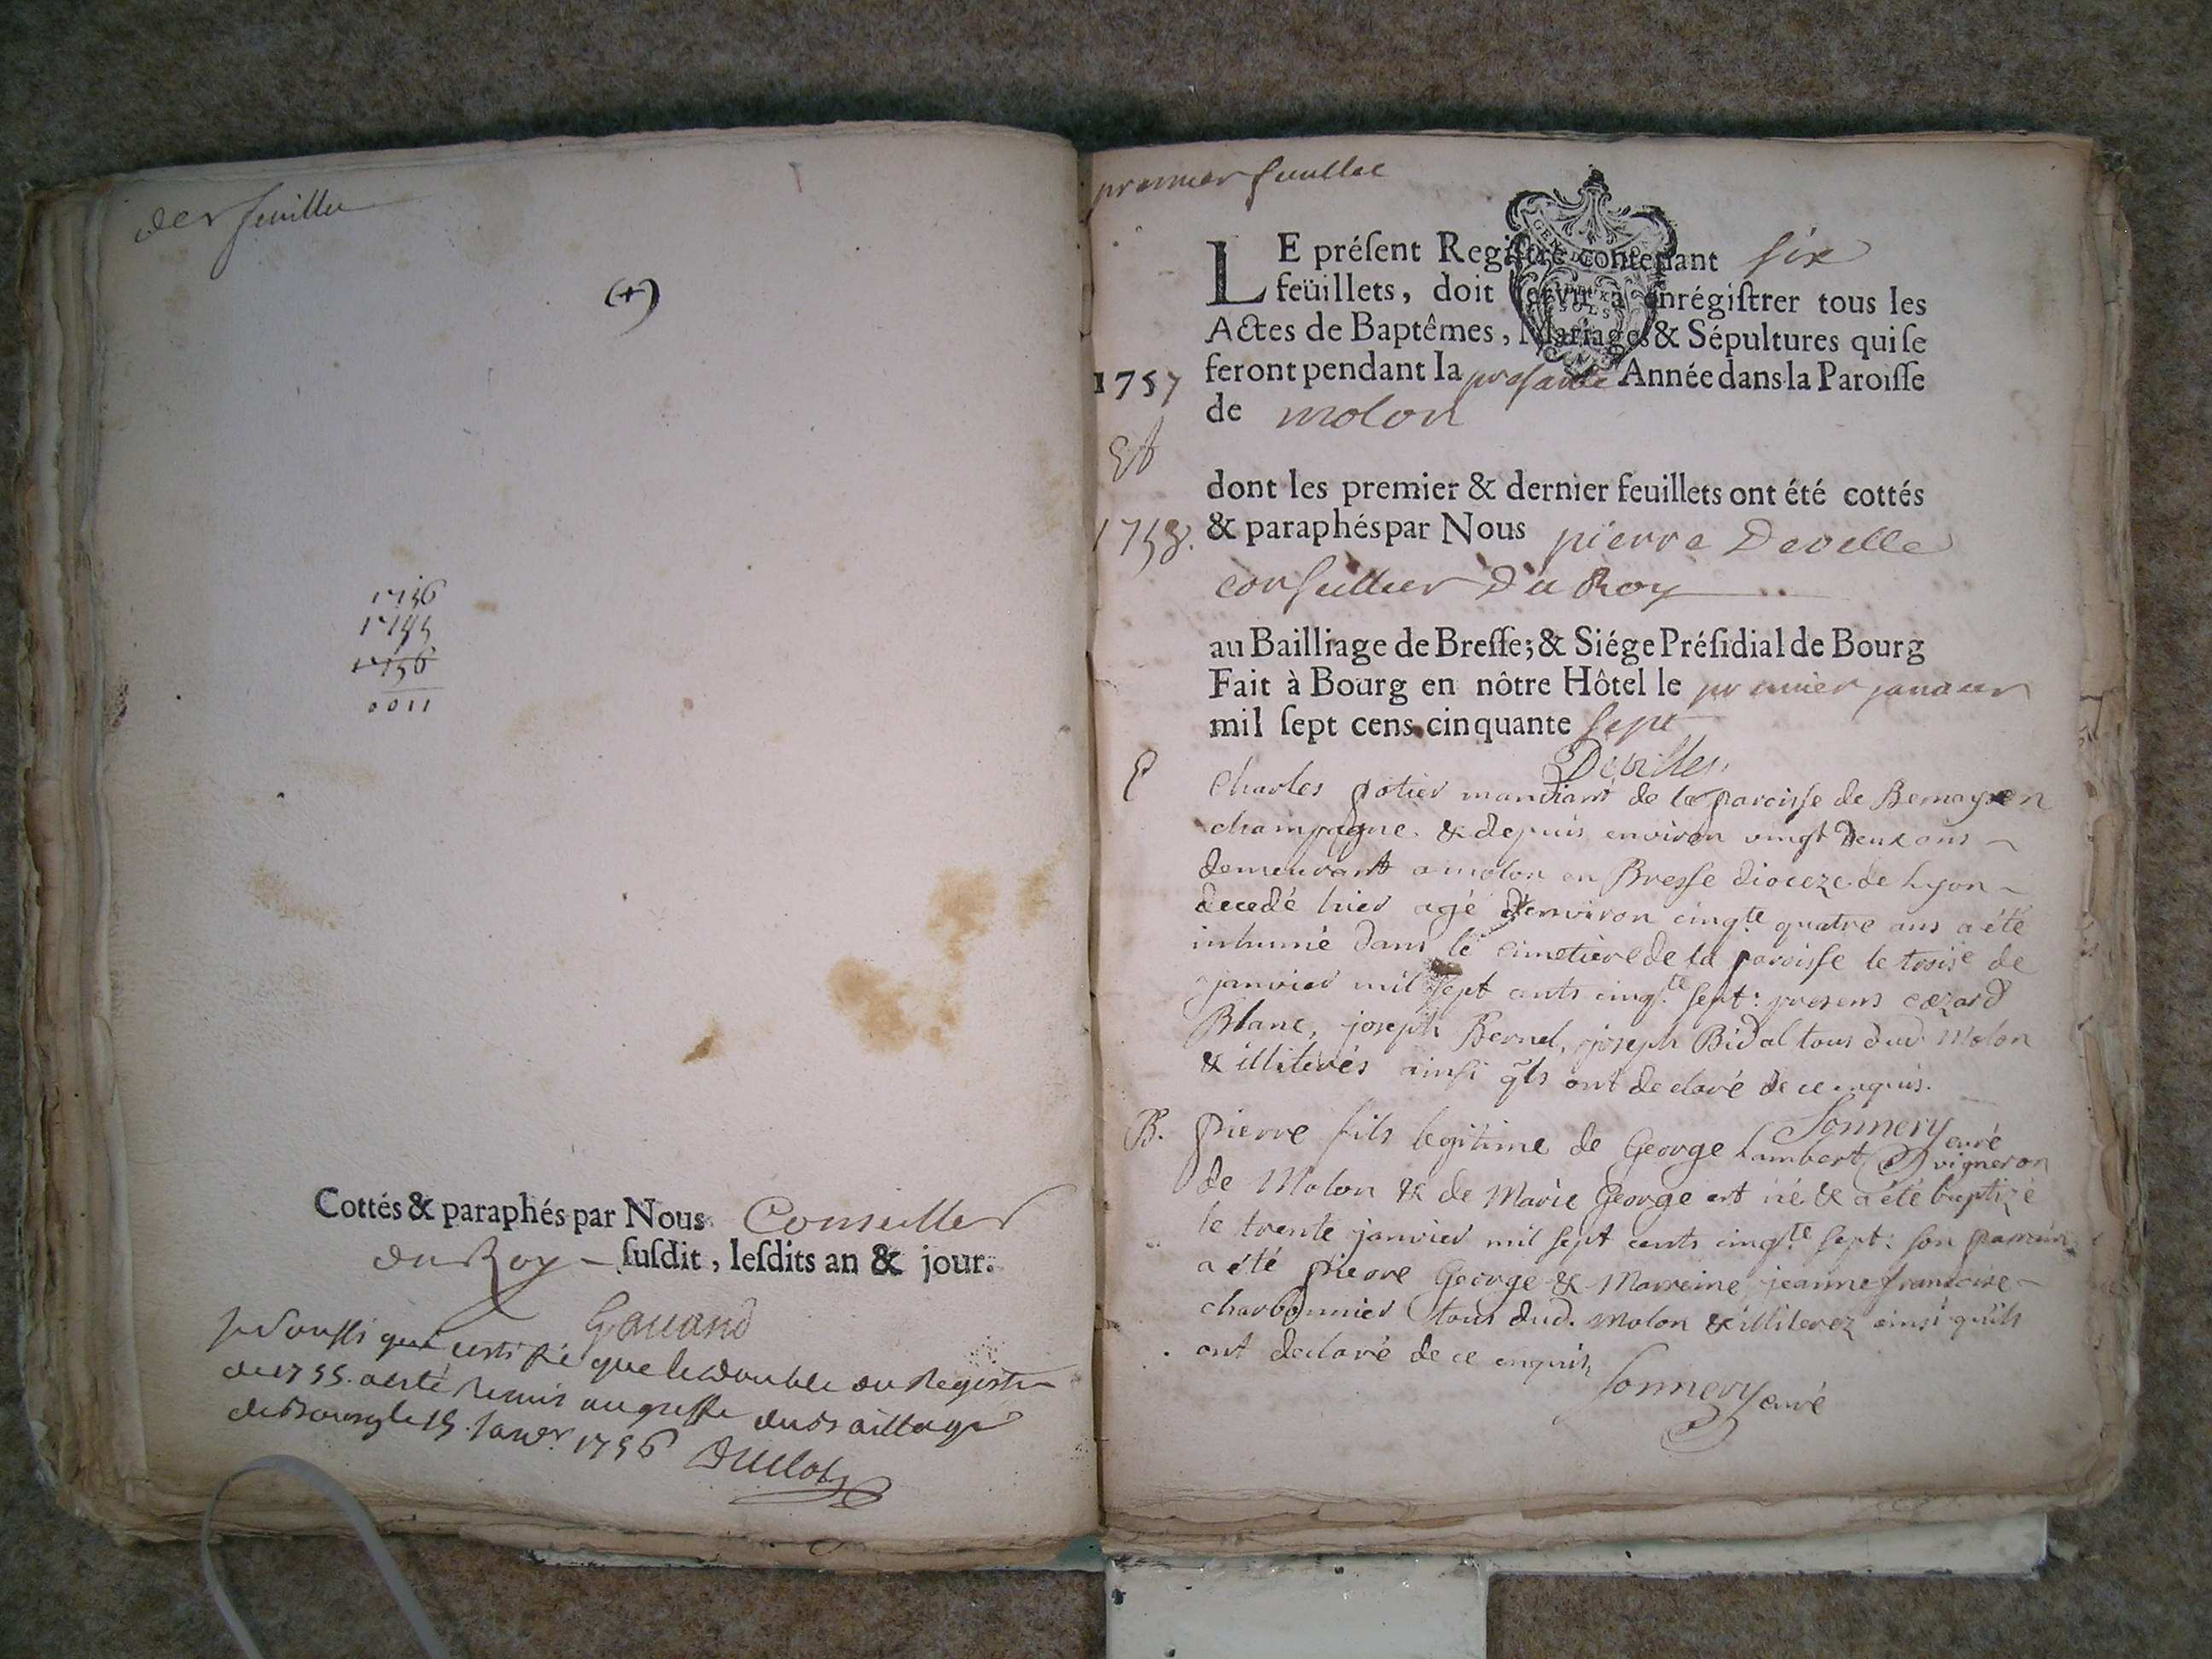 der feuillet
(+)
1756
1745
1756
0011
Cottés & paraphés par Nous Conseiller
du Roy – susdit, lesdits an & jour.
Gauand
que le double du Registre
de 1755. a esté remis au greffe du Baillage
de Bourg le 15. Janer. 1756
premier feuillet
LE présent Registre contenant six
feüillets, doit servir à enrégistrer tous les
Actes de Baptêmes, Mariages & Sépultures qui se
1757 feront pendant la presante Année dans la Paroisse
de molon
Et
dont les premier & dernier feuillets ont été cottés
1758. & paraphés par Nous pierre Deville
conseillier du Roy
au Bailliage de Bresse; & Siége Présidial de Bourg
Fait à Bourg en nôtre Hôtel le premier januier
mil sept cens cinquante sept
Deville
Charles potier mandiant de la paroisse de en
champagne. & depuis environ vingt deux ans
demeurant a molon en Bresse dioceze de Lyon
decedé hier agé d'environ cinqte quatre ans a été
inhumé dans le cimetiere de la paroisse le troise de
janvier mil sept cents cinqte sept: presens cezard
Blanc, joseph Bernel, joseph Bidal tous dud. Molon
& illiterés ainsi qls ont declaré de ce enquis.
Sonnery curé
B. pierre fils legitime de George Lambert vigneron
de Molon & de Marie George est né & a été baptizé
le trente janvier mil sept cents cinqte sept: son parrain
a été pierre George & Marreine jeanne francoise
charbonnier tous dud. Molon & illiterez ainsi qu'ils
ont declaré de ce enquis
Sonnery curé